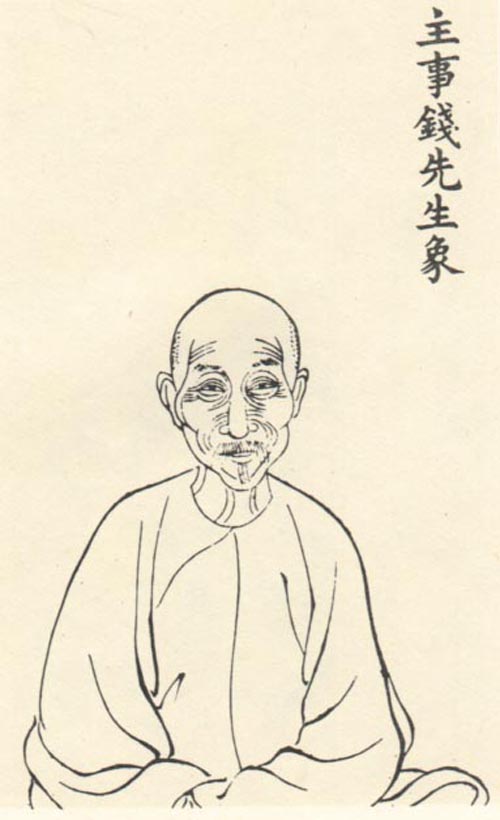 主事錢先生象